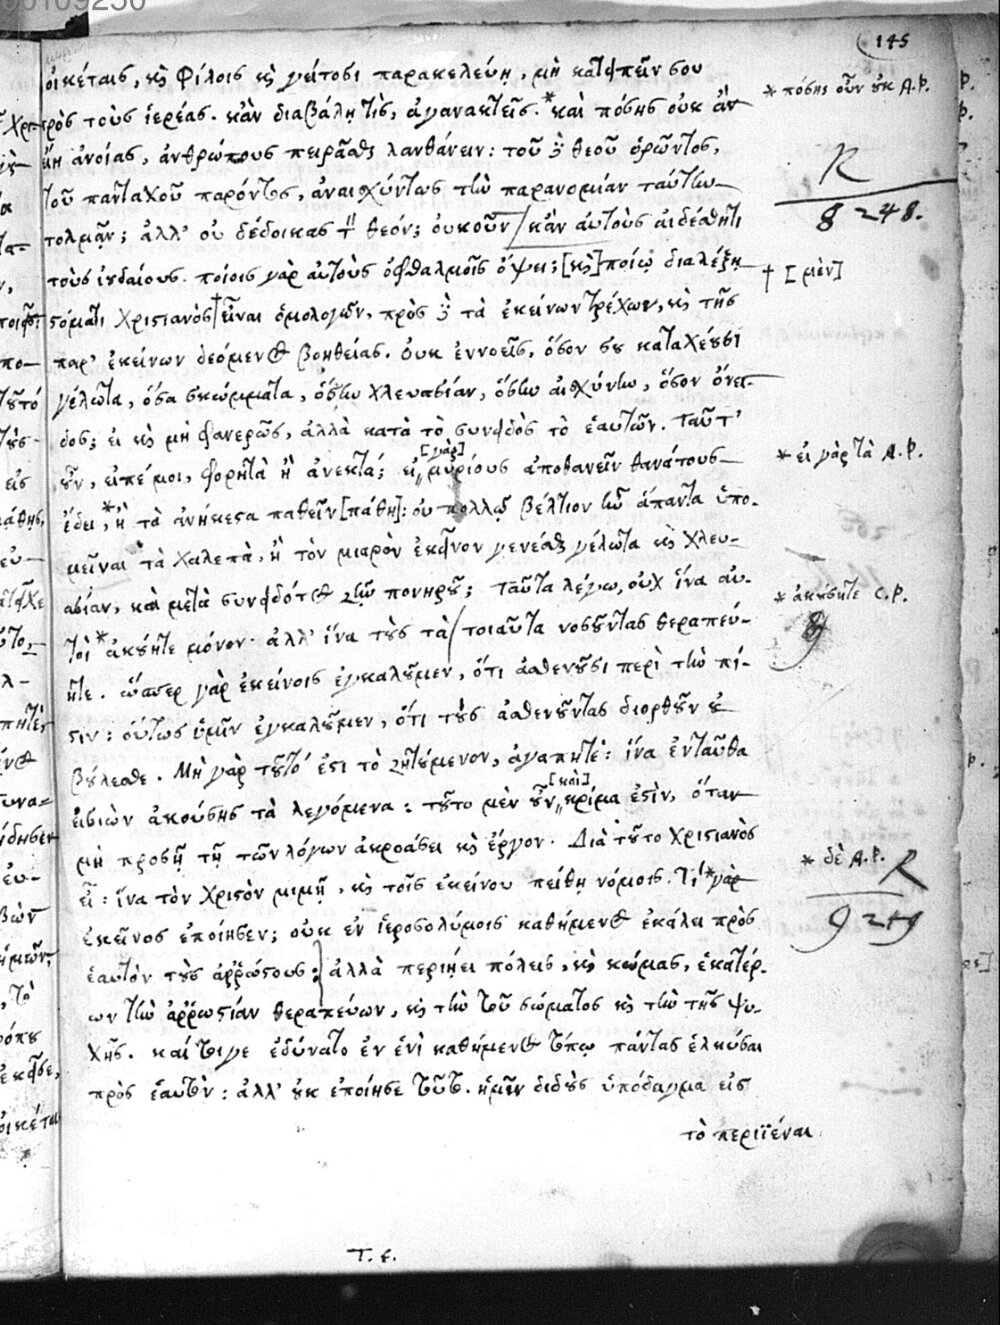 00109250
145
οἰκέταις, κỳ φίλοις κỳ γείτοσι παρακελεύῃ, μὴ κατειπεῖν σου
πρὸς τοὺς ἱερέας. κἂν διαβάλῃ τὶς, ἀγανακτεῖς. *καὶ πόσης οὐκ ἂν
εἴη ἀνοίας, ἀνθρώπους πειρᾶσθαι λανθάνειν: τοῦ δὲ θεοῦ ὁρῶντος,
τοῦ πανταχοῦ παρόντος, ἀναισχύντως τὴν παρανομίαν ταύτην
τολμᾷν; ἀλλ' οὐ δέδοικας τὸν θεόν; οὐκοῦν / κἂν αὐτοὺς αἰδέσθητι
τοὺς ἰȣδαίους. ποίοις γὰρ αὐτοὺς ὀφθαλμοῖς ὄψει; [κỳ] ποίῳ διαλέξῃ
στόματι Χριστιανὸς † εἶναι ὁμολογῶν, πρὸς δὲ τὰ ἐκείνων τρέχων, κỳ τῆς
παρ' ἐκείνων δεόμενος βοηθείας. Οὐκ ἐννοεῖς, ὅσον σȣ καταχέȣσι
γέλωτα, ὅσα σκώμματα, ὅσην χλευασίαν, ὅσην αἰσχύνην, ὅσον ὄνει-
δος; εἰ κỳ μὴ φανερῶς, ἀλλὰ κατὰ τὸ συνειδὸς τὸ ἑαυτῶν. ταῦτ'
ȣ̓͂ν, εἰπέ μοι, φορητὰ ἢ ἀνεκτά; εἰ [γὰρ] μυρίους ἀποθανεῖν θανάτους
ἔδει, * ἢ τὰ ἀνήκεστα παθεῖν [πάθη]: οὐ πολλῷ βέλτιον ἦν ἅπαντα ὑπο-
μεῖναι τὰ χαλεπὰ, ἢ τὸν μιαρὸν ἐκεῖνον γενέσθαι γέλωτα κỳ χλευ-
ασίαν, καὶ μετὰ συνειδότος ζῆν πονηρȣ͂; ταῦτα λέγω, οὐχ ἵνα αὐ-
τοὶ * ἀκȣ́ητε μόνον· ἀλλ' ἵνα τȣ̀ς τὰ / τοιαῦτα νοσȣ͂ντας θεραπεύ-
ητε. ὥσπερ γὰρ ἐκείνοις ἐγκαλȣ͂μεν, ὅτι ἀσθενȣ͂σι περὶ τὴν πί-
στιν: οὕτως ὑμῖν ἐγκαλȣ͂μεν, ὅτι τȣ̀ς ἀσθενȣ͂ντας διορθȣ͂ν ȣ̓
βȣ́λεσθε. Μὴ γὰρ τȣ͂τό ἐστι τὸ ζητȣ́μενον, ἀγαπητὲ: ἵνα ἐνταῦθα
εἰσιὼν ἀκούσης τὰ λεγόμενα: τȣ͂το μὲν ȣ̓͂ν [καὶ] κρίμα ἐστὶν, ὅταν
μὴ προσῇ τῇ τῶν λόγων ἀκροάσει κỳ ἔργον. Διὰ τȣ͂το Χριστιανὸς
εἶ: ἵνα τὸν Χριστὸν μιμῇ, κỳ τοῖς ἐκείνου πείθῃ νόμοις. Τί * γὰρ
ἐκεῖνος ἐποίησεν; οὐκ ἐν ἱεροσολύμοις καθήμενος ἐκάλει πρὸς
ἑαυτὸν τȣ̀ς ἀῤῥώστους; ἀλλὰ περιῄει πόλεις, κỳ κώμας, ἑκατέρ-
ων τὴν ἀῤῥωστίαν θεραπεύων, κỳ τὴν τοῦ σώματος κỳ τὴν τῆς ψυ-
χῆς. καίτοιγε ἐδύνατο ἐν ἑνὶ καθήμενος τόπῳ πάντας ἑλκύσαι
πρὸς ἑαυτόν: ἀλλ' ȣ̓κ ἐποίησε τοῦτο. ἡμῖν διδȣ̀ς ὑπόδειγμα εἰς
τὸ περιϊέναι
T. ε.
* πόσης οὖν ȣ̓κ A.P.
R
8 248.
† [μὲν]
* εἰ γὰρ τὰ A.P.
* ἀκȣ́σητε C.P.
* δὲ A.P. R
9 249